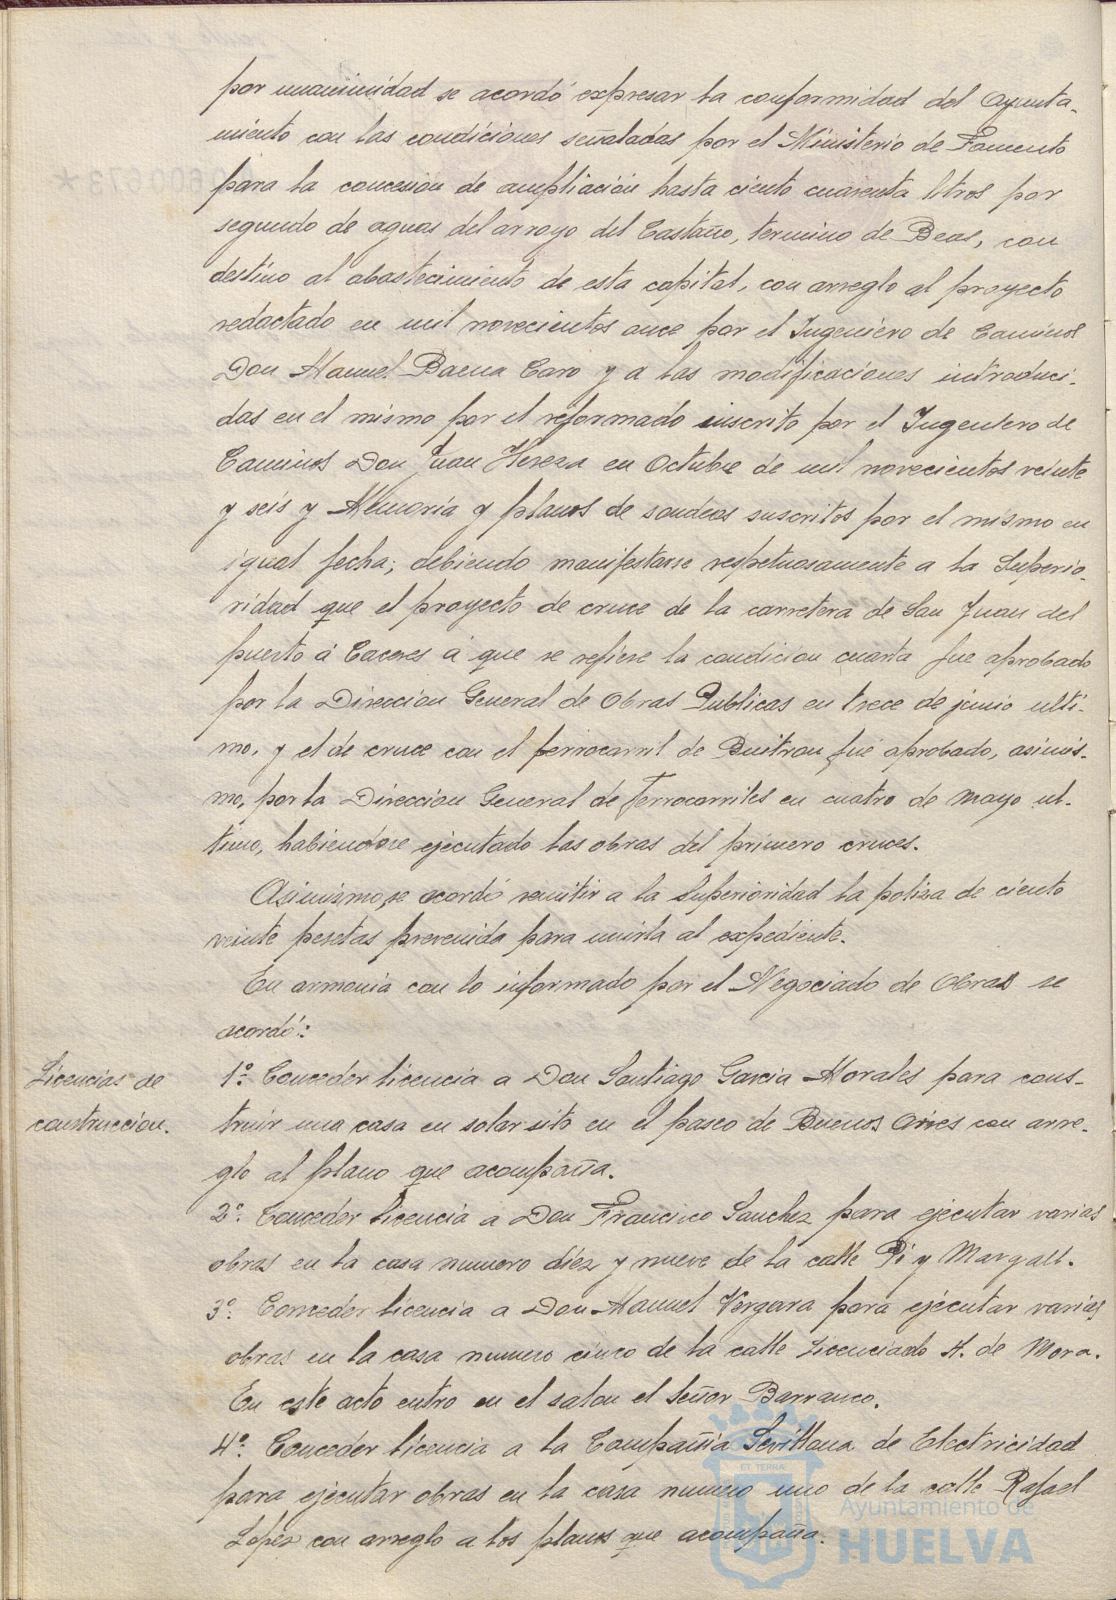 por unanimidad se acordó expresar la conformidad del Ayunta-
miento con las condiciones señaladas por el Ministerio de Fomento
para la concesion de ampliación hasta ciento cuarenta litros por
segundo de aguas del arroyo del Castaño, termino de Beas, con
destino al abastecimiento de esta capital, con arreglo al proyecto
redactado en mil novecientos once por el Ingeniero de Caminos
Don Manuel Baena Caro y a las modificaciones introduci-
das en el mismo por el reformado suscrito por el Ingeniero de
Caminos Don Juan Hereza en Octubre de mil novecientos veinte
y seis y Memoria y planos de sondeos suscritos por el mismo en
igual fecha; debiendo manifestarse respetuosamente a la Superio-
ridad que el proyecto de cruce de la carretera de San Juan del
puerto á Caceres á que se refiere la condicion cuarta fue aprobado
por la Direccion General de Obras Publicas en trece de junio ulti-
mo, y el de cruce con el ferrocarril de Buitron fué aprobado, asimis-
mo, por la Direccion General de Ferrocarriles en cuatro de Mayo ul-
timo, habiendose ejecutado las obras del primero cruces.
Asimismo, se acordó remitir a la Superioridad la poliza de ciento
veinte pesetas prevenida para unirla al expediente.
En armonia con lo informado por el Negociado de Obras se
acordó:
Licencias de
construccion.
1º. Conceder licencia a Don Santiago Garcia Morales para cons-
truir una casa en solar sito en el paseo de Buenos Aires con arre-
glo al plano que acompaña.
2º. Conceder licencia a Don Francisco Sanchez para ejecutar varias
obras en la casa numero diez y nueve de la calle Pi y Margall.
3º. Conceder licencia a Don Manuel Vergara para ejecutar varias
obras en la casa numero cinco de la calle Licenciado A. de Mora.
En este acto entro en el salon el Señor Barranco.
4º. Conceder licencia a la Compañia Sevillana de Electricidad
para ejecutar obras en la casa numero uno de la calle Rafael
Lopez con arreglo a los planos que acompaña.
ET TERRA
Ayuntamiento de
HUELVA